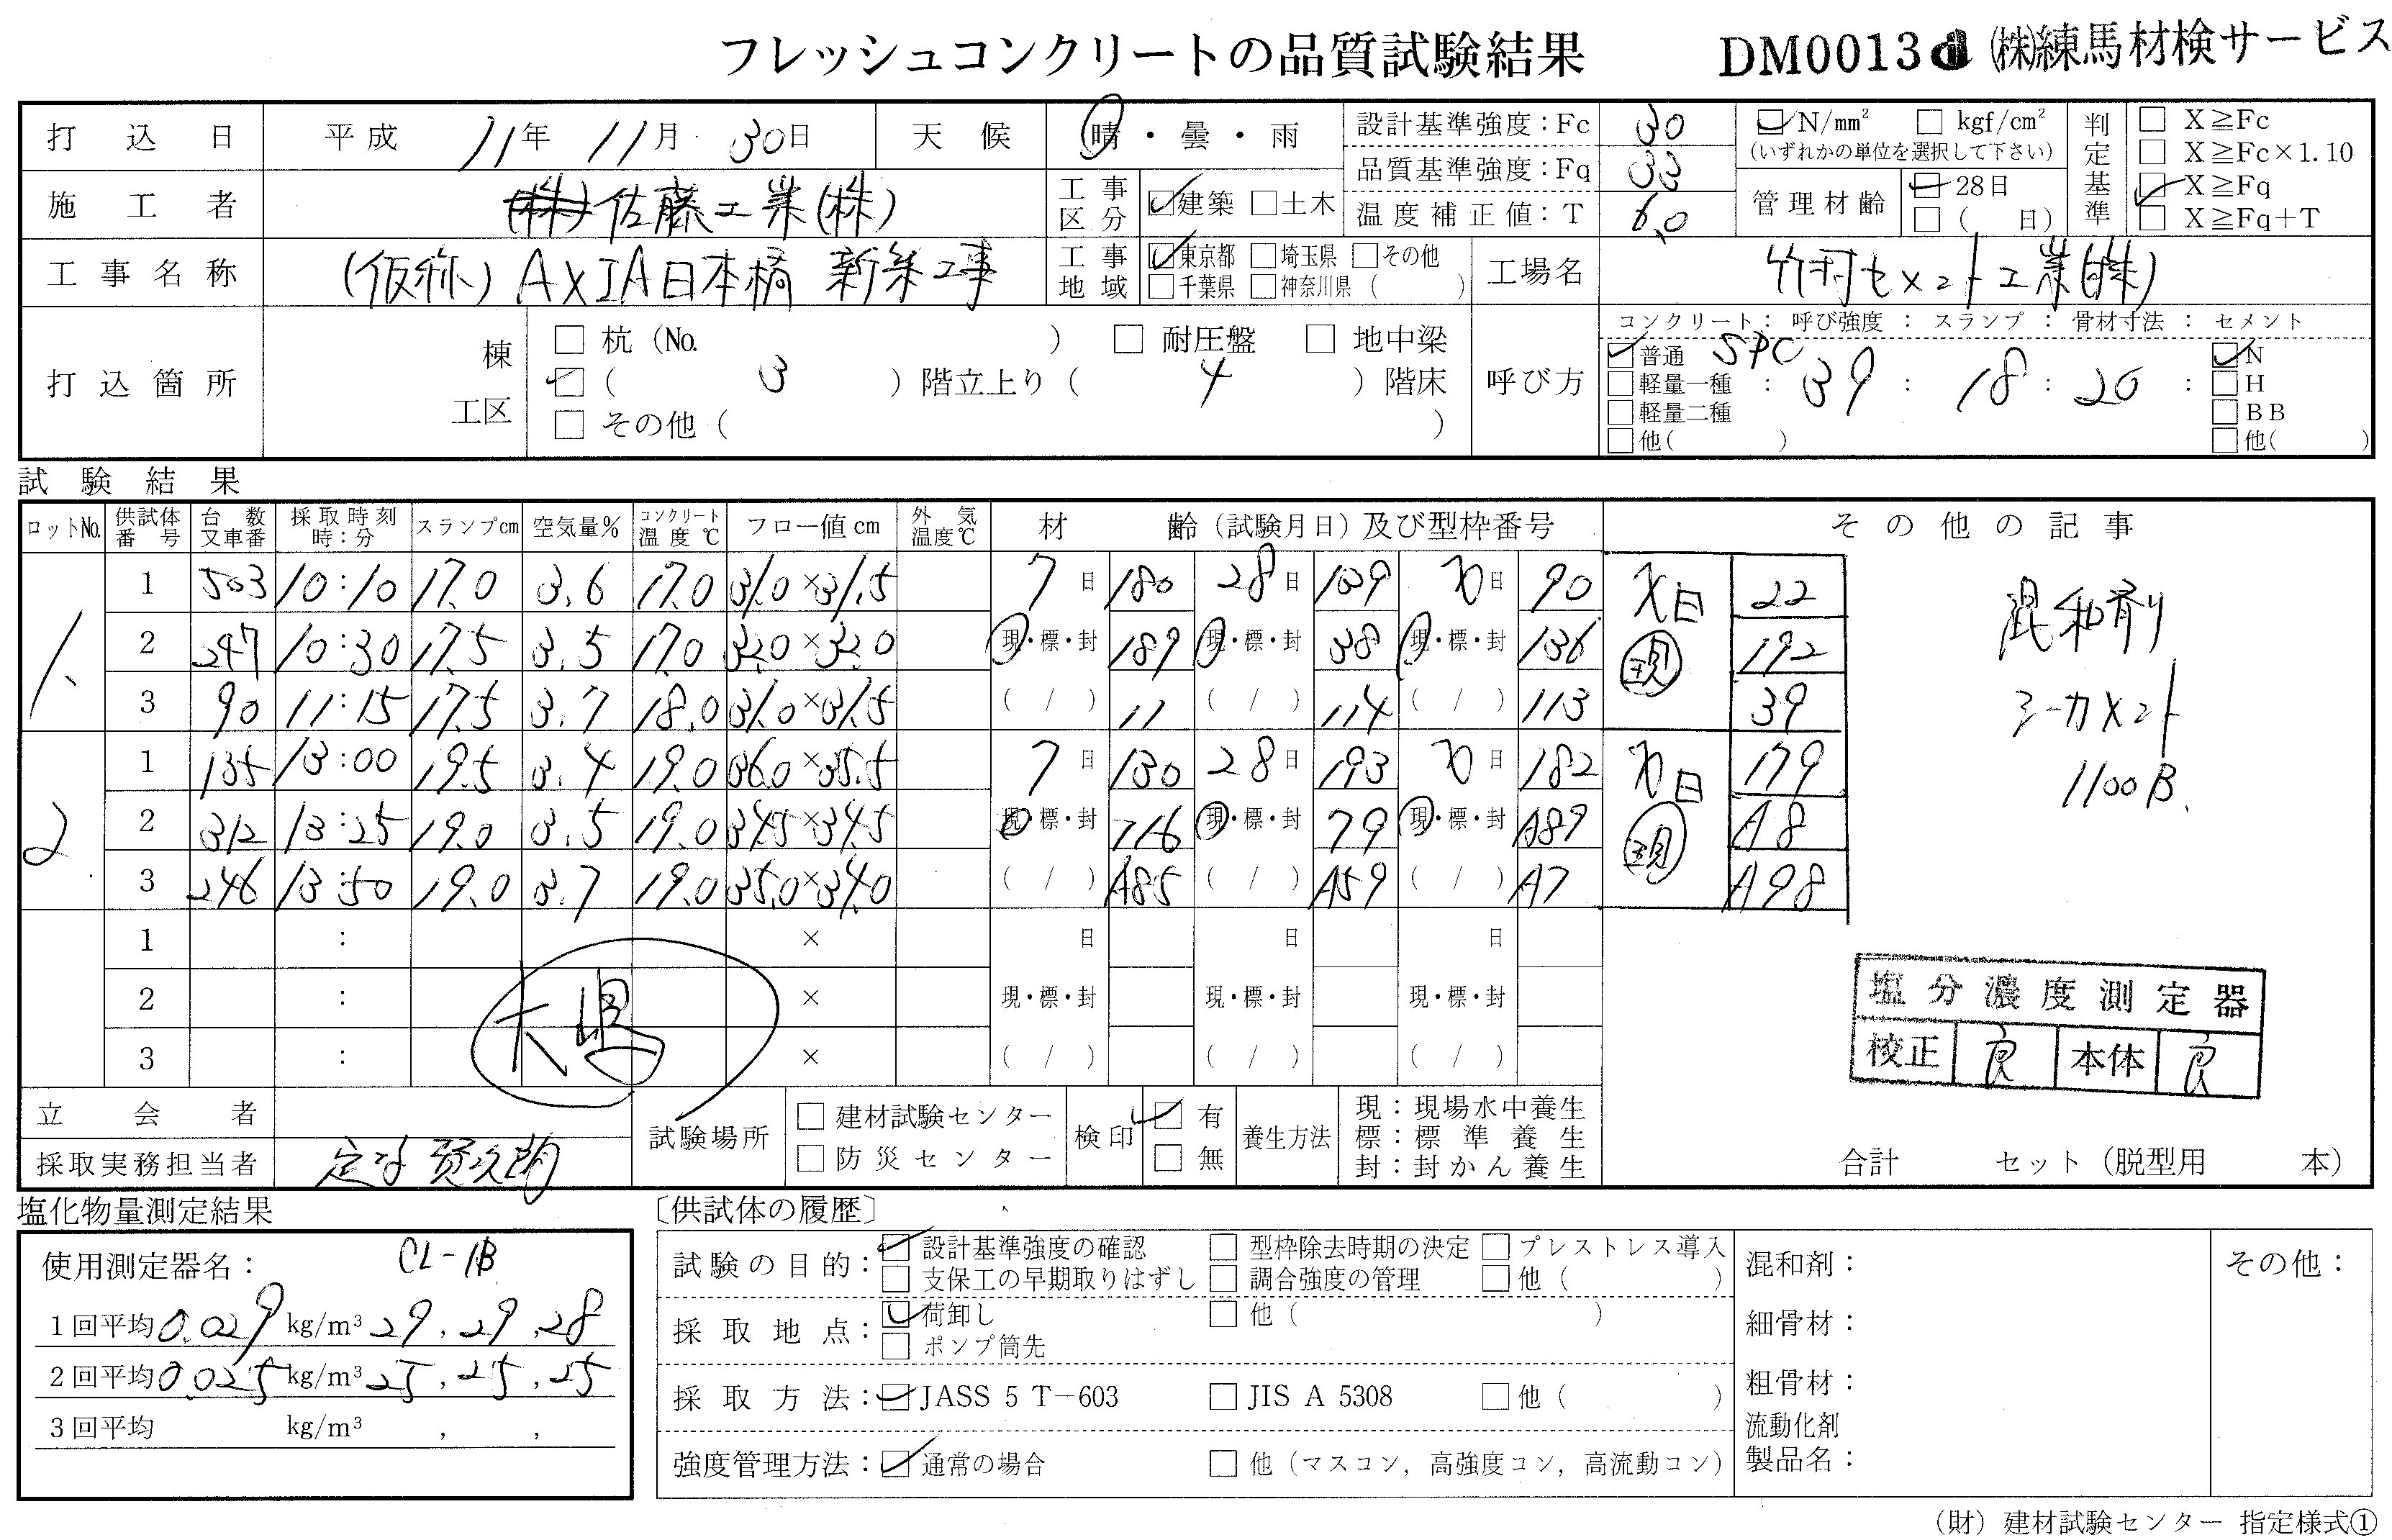 フレッシュコンクリートの品質試験結果 DM0013 ㈱練馬材検サービス
打込日 平成 11年 11月 30日 天候 晴・曇・雨 設計基準強度：Fc 30 N/mm² kgf/cm² 判定基準 X≧Fc
(いずれかの単位を選択して下さい) X≧Fc×1.10
品質基準強度：Fq 33
施工者 (株) 佐藤工業(株) 工事区分 建築 土木 温度補正値：T 6.0 管理材齢 28日 ( 日) X≧Fq
X≧Fq＋T
工事名称 (仮称) AXIA日本橋 新築工事 工事地域 東京都 埼玉県 その他
千葉県 神奈川県 ( ) 工場名 竹村セメント工業(株)
打込箇所 棟 工区 杭 (No. ) 耐圧盤 地中梁
( 3 ) 階立上り ( 4 ) 階床
その他 ( )
呼び方 コンクリート： 呼び強度 ： スランプ ： 骨材寸法 ： セメント
普通 SPC ： 39 ： 18 ： 20 ： N
軽量一種 H
軽量二種 BB
他( ) 他( )
試験結果
ロットNo. 供試体番号 台数又車番 採取時刻 時：分 スランプcm 空気量% コンクリート温度℃ フロー値cm 外気温度℃ 材齢 (試験月日) 及び型枠番号 その他の記事
1. 1 503 10:10 17.0 3.6 17.0 31.0×31.5 7日 180 28日 139 日 90 日 22
2 247 10:30 17.5 3.5 17.0 32.0×32.0 現・標・封 189 現・標・封 38 現・標・封 136 現 192
3 90 11:15 17.5 3.7 18.0 31.0×31.5 ( / ) 11 ( / ) 114 ( / ) 113 39
2. 1 135 13:00 19.5 3.4 19.0 36.0×35.5 7日 130 28日 193 日 182 日 179
2 312 13:25 19.0 3.5 19.0 34.5×34.5 現・標・封 716 現・標・封 79 現・標・封 A89 現 A8
3 246 13:50 19.0 3.7 19.0 35.0×34.0 ( / ) A85 ( / ) A59 ( / ) A7 A98
混和剤
シーカメント
1100B.
1 ： × 日 日 日
2 ： × 現・標・封 現・標・封 現・標・封
3 ： × ( / ) ( / ) ( / )
塩分濃度測定器
校正 良 本体 良
立会者
採取実務担当者
試験場所 建材試験センター
防災センター
検印 有
無
養生方法 現：現場水中養生
標：標準養生
封：封かん養生
合計 セット (脱型用 本)
塩化物量測定結果
使用測定器名： CL-1B
1回平均 0.029 kg/m³ 29, 29, 28
2回平均 0.025 kg/m³ 25, 25, 25
3回平均 kg/m³ , ,
〔供試体の履歴〕
試験の目的： 設計基準強度の確認 型枠除去時期の決定 プレストレス導入
支保工の早期取りはずし 調合強度の管理 他 ( )
採取地点： 荷卸し 他 ( )
ポンプ筒先
採取方法： JASS 5 T－603 JIS A 5308 他 ( )
強度管理方法： 通常の場合 他 (マスコン, 高強度コン, 高流動コン)
混和剤：
細骨材：
粗骨材：
流動化剤
製品名：
その他：
(財) 建材試験センター 指定様式①